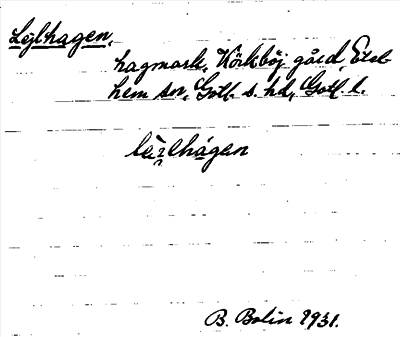 Löjlhagen,
hagmark, Körkböj gård, Etel-
hem sn, Gotl. s. hd, Gotl. l.
B. Bolin 1931.